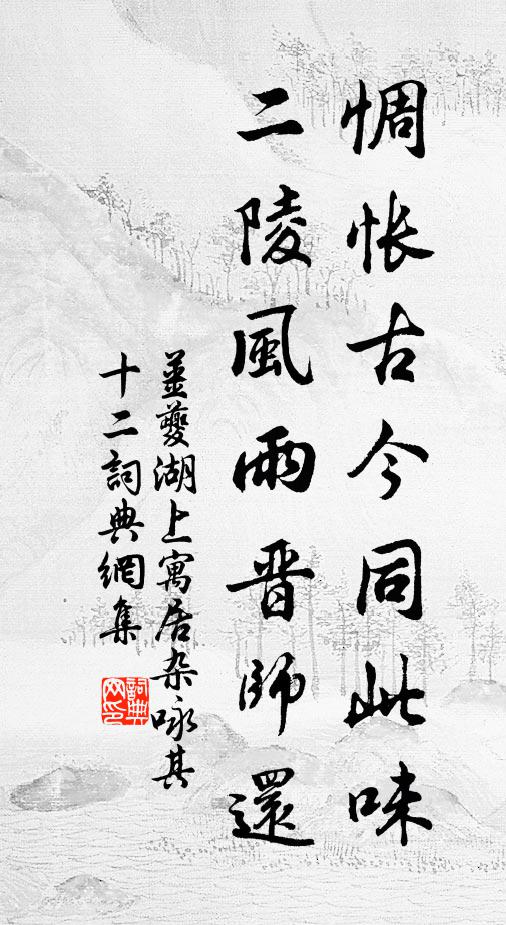 惆怅古今同此味
二陵風雨晋師還
姜夔湖上寓居杂咏其
十二詞典網集
詞典网印